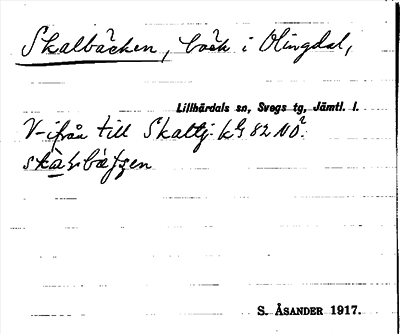 Skalbäcken, bäck i Olingdal,
Lillhärdals sn, Svegs tg, Jämtl. l.
V-ifrån till Skaltj. kG 82 NO?
S. ÅSANDER 1917.